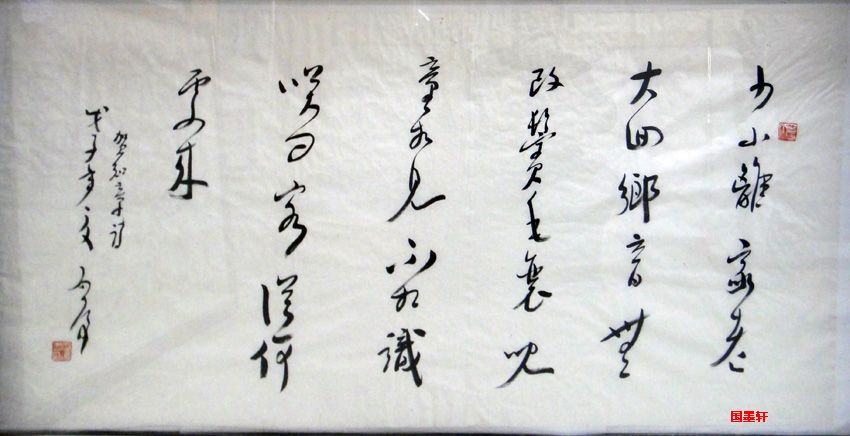 少小離家老
大囬鄉音無
改鬢毛衰兒
童相見不相識
咲问客從何
處来
賀知章詩
戊子
国墨轩